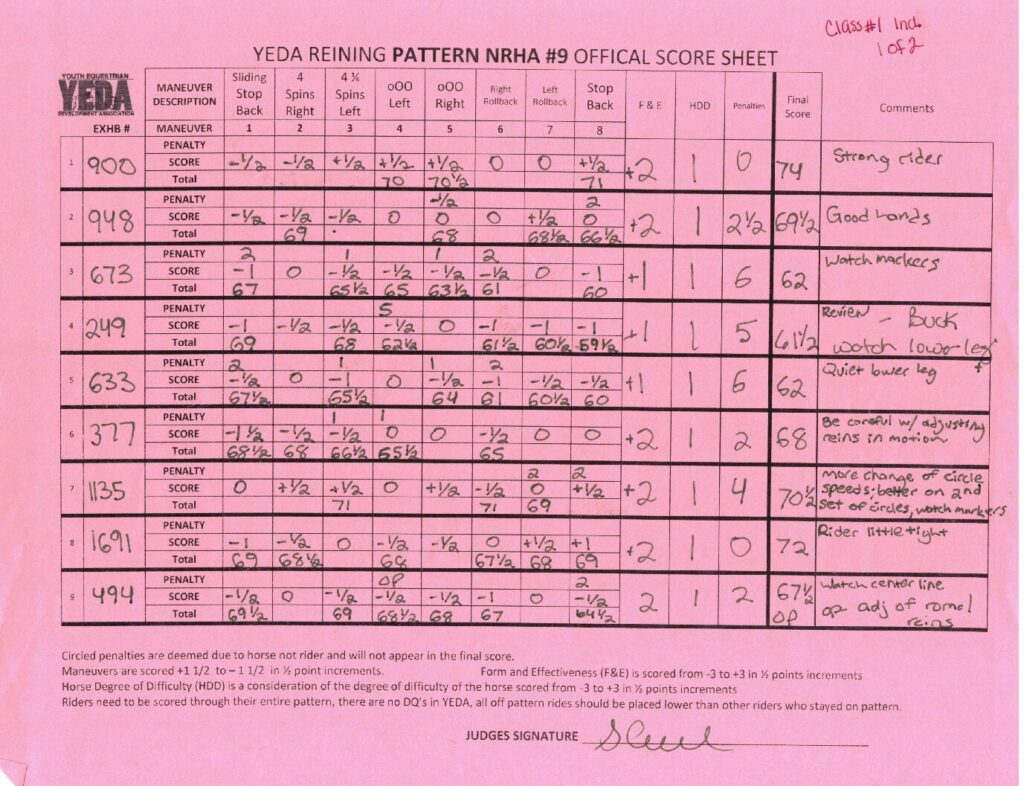 Class#1 Ind.
1 of 2
YEDA REINING PATTERN NRHA #9 OFFICAL SCORE SHEET
YOUTH EQUESTRIAN
YEDA
DEVELOPMENT ASSOCIATION
MANEUVER DESCRIPTION Sliding Stop Back 4 Spins Right 4 ¼ Spins Left oOO Left oOO Right Right Rollback Left Rollback Stop Back F & E HDD Penalties Final Score Comments
EXHB # MANEUVER 1 2 3 4 5 6 7 8
PENALTY
1 900 SCORE -1/2 -1/2 +1/2 +1/2 +1/2 0 0 +1/2 +2 1 0 74 Strong rider
Total 70 70 1/2 71
PENALTY -1/2 2
2 948 SCORE -1/2 -1/2 -1/2 0 0 0 +1/2 0 +2 1 2 1/2 69 1/2 Good hands
Total 69 68 68 1/2 66 1/2
PENALTY 2 1 1 2 Watch markers
3 673 SCORE -1 0 -1/2 -1/2 -1/2 -1/2 0 -1 +1 1 6 62
Total 67 65 1/2 65 63 1/2 61 60
PENALTY 5 Review - Buck
4 249 SCORE -1 -1/2 -1/2 -1/2 0 -1 -1 -1 +1 1 5 61 1/2 watch lower leg
Total 69 68 62 1/2 61 1/2 60 1/2 59 1/2
PENALTY 2 1 1 2 Quiet lower leg +
5 633 SCORE -1/2 0 -1 0 -1/2 -1 -1/2 -1/2 +1 1 6 62
Total 67 1/2 65 1/2 64 61 60 1/2 60
PENALTY 1 1 Be careful w/ adjusting
6 377 SCORE -1 1/2 -1/2 -1/2 0 0 -1/2 0 0 +2 1 2 68 reins in motion
Total 68 1/2 68 66 1/2 65 1/2 65
PENALTY 2 2 more change of circle
7 1135 SCORE 0 +1/2 +1/2 0 +1/2 -1/2 0 +1/2 +2 1 4 70 1/2 speeds; better on 2nd
Total 71 71 69 set of circles, watch markers
PENALTY Rider little tight
8 1691 SCORE -1 -1/2 0 -1/2 -1/2 0 +1/2 +1 +2 1 0 72
Total 69 68 1/2 68 67 1/2 68 69
PENALTY OP 2 Watch center line
9 494 SCORE -1/2 0 -1/2 -1/2 -1/2 -1 0 -1/2 2 1 2 67 1/2 op adj of romal
Total 69 1/2 69 68 1/2 68 67 64 1/2 OP reins
Circled penalties are deemed due to horse not rider and will not appear in the final score.
Maneuvers are scored +1 1/2 to – 1 1/2 in ½ point increments. Form and Effectiveness (F&E) is scored from -3 to +3 in ½ points increments
Horse Degree of Difficulty (HDD) is a consideration of the degree of difficulty of the horse scored from -3 to +3 in ½ points increments
Riders need to be scored through their entire pattern, there are no DQ's in YEDA, all off pattern rides should be placed lower than other riders who stayed on pattern.
JUDGES SIGNATURE